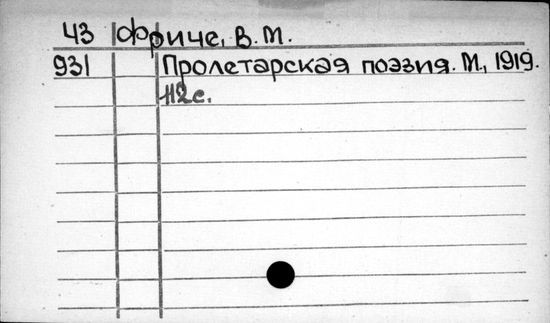 43 Фриче, В. М.
931 Пролетарская поэзия. М., 1919.
112 с.